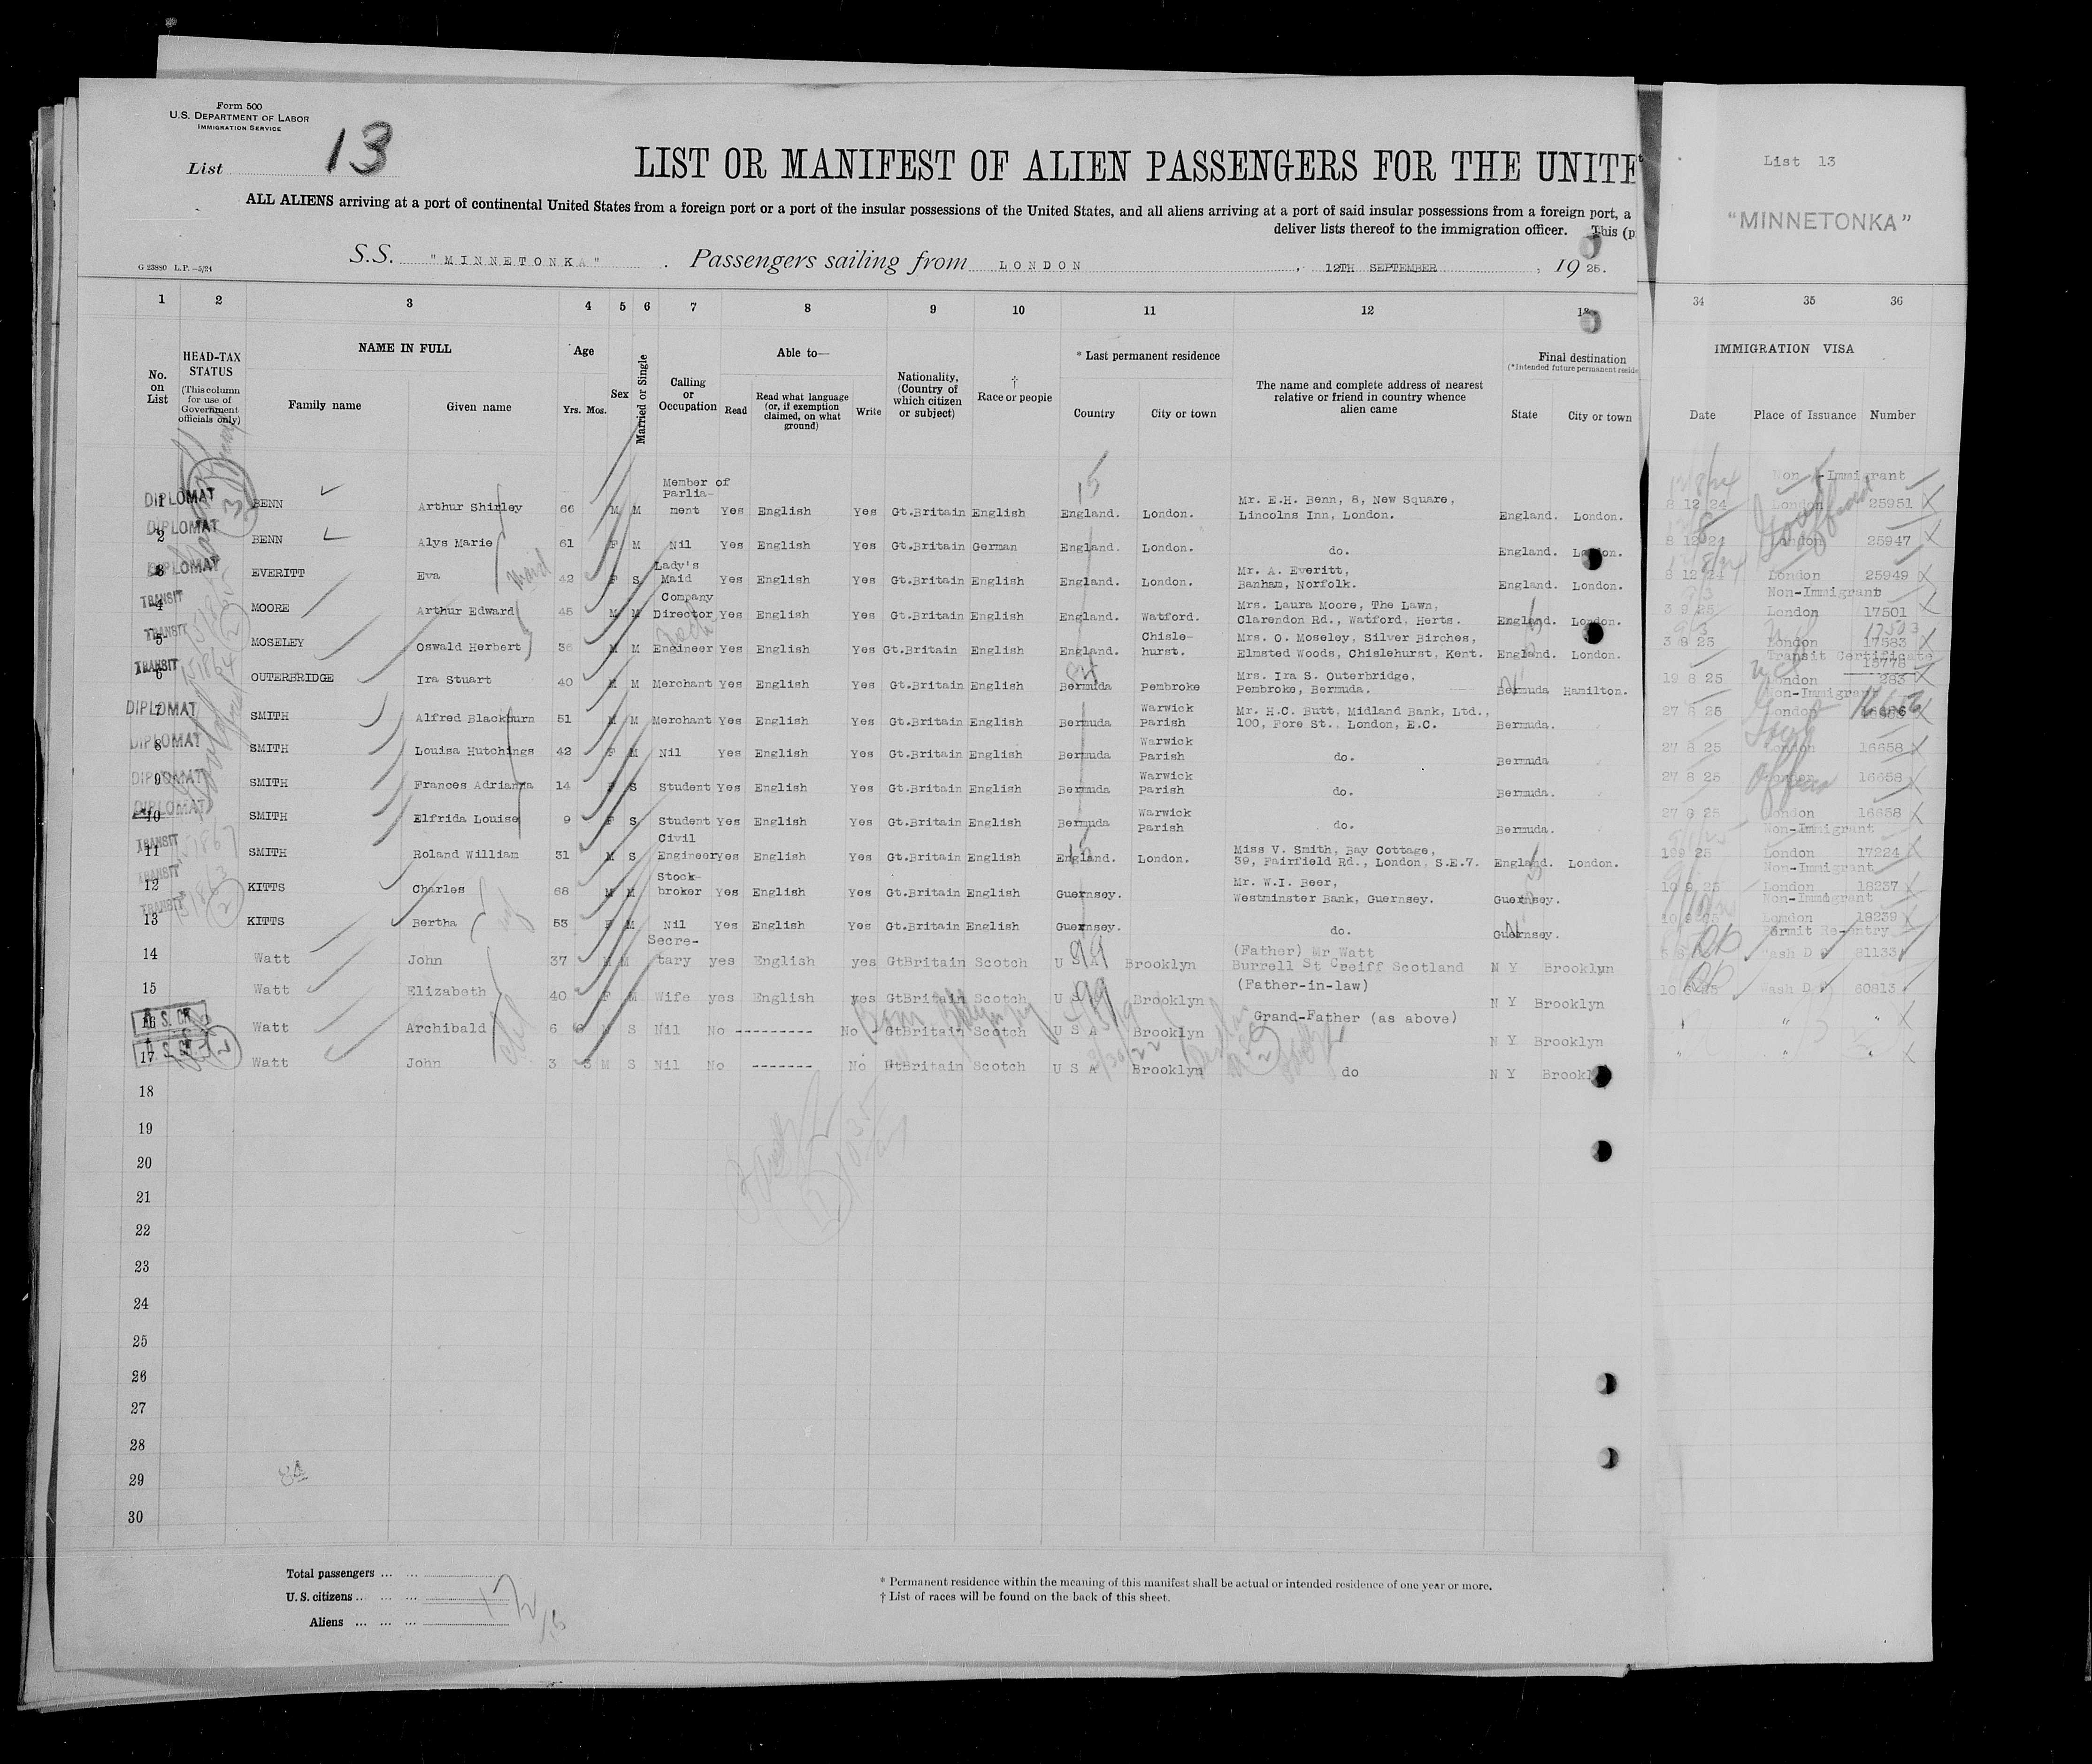 Form 500
U.S. DEPARTMENT OF LABOR
IMMIGRATION SERVICE
List 13
LIST OR MANIFEST OF ALIEN PASSENGERS FOR THE UNITE
List 13
"MINNETONKA"
ALL ALIENS arriving at a port of continental United States from a foreign port or a port of the insular possessions of the United States, and all aliens arriving at a port of said insular possessions from a foreign port, a
deliver lists thereof to the immigration officer. This (p
G 23880 L.P.—5/24
S.S. "MINNETONKA" . Passengers sailing from LONDON , 12TH SEPTEMBER , 19 25.
1 2 3 4 5 6 7 8 9 10 11 12 13 34 35 36
No. on List
HEAD-TAX STATUS
(This column for use of Government officials only)
NAME IN FULL
Family name Given name
Age
Yrs. Mos.
Sex
Married or Single
Calling or Occupation
Able to—
Read
Read what language (or, if exemption claimed, on what ground)
Write
Nationality, (Country of which citizen or subject)
† Race or people
* Last permanent residence
Country City or town
The name and complete address of nearest relative or friend in country whence alien came
Final destination
(*Intended future permanent reside
State City or town
IMMIGRATION VISA
Date Place of Issuance Number
DIPLOMAT 1 BENN Arthur Shirley 66 M M Member of Parlia-ment Yes English Yes Gt.Britain English England. London. Mr. E.H. Benn, 8, New Square, Lincolns Inn, London. England. London. Non-Immigrant 8 12 24 London 25951
DIPLOMAT 2 BENN Alys Marie 61 F M Nil Yes English Yes Gt.Britain German England. London. do. England. London. 8 12 24 London 25947
DIPLOMAT 3 EVERITT Eva maid 42 F S Lady's Maid Yes English Yes Gt.Britain English England. London. Mr. A. Everitt, Banham, Norfolk. England. London. 8 12 24 London 25949
TRANSIT 4 MOORE Arthur Edward 45 M M Company Director Yes English Yes Gt.Britain English England. Watford. Mrs. Laura Moore, The Lawn, Clarendon Rd., Watford, Herts. England. London. Non-Immigrant 3 9 25 London 17501
TRANSIT 5 MOSELEY Oswald Herbert 36 M M Engineer Yes English Yes Gt.Britain English England. Chisle-hurst. Mrs. O. Moseley, Silver Birches, Elmsted Woods, Chislehurst, Kent. England. London. 3 8 25 London 17583 17503
TRANSIT 6 OUTERBRIDGE Ira Stuart 40 M M Merchant Yes English Yes Gt.Britain English Bermuda Pembroke Mrs. Ira S. Outerbridge, Pembroke, Bermuda. Bermuda Hamilton. Transit Certificate 19 8 25 London 263
DIPLOMAT 7 SMITH Alfred Blackburn 51 M M Merchant Yes English Yes Gt.Britain English Bermuda Warwick Parish Mr. H.C. Butt, Midland Bank, Ltd., 100, Fore St., London, E.C. Bermuda. Non-Immigrant 27 8 25 London
DIPLOMAT 8 SMITH Louisa Hutchings 42 F M Nil Yes English Yes Gt.Britain English Bermuda Warwick Parish do. Bermuda 27 8 25 London 16658
DIPLOMAT 9 SMITH Frances Adrianna 14 F S Student Yes English Yes Gt.Britain English Bermuda Warwick Parish do. Bermuda. 27 8 25 London 16658
DIPLOMAT 10 SMITH Elfrida Louise 9 F S Student Yes English Yes Gt.Britain English Bermuda Warwick Parish do. Bermuda. 27 8 25 London 16658
TRANSIT 11 SMITH Roland William 31 M S Civil Engineer Yes English Yes Gt.Britain English England. London. Miss V. Smith, Bay Cottage, 39, Fairfield Rd., London, S.E.7. England. London. Non-Immigrant 109 25 London 17224
TRANSIT 12 KITTS Charles 68 M M Stock-broker Yes English Yes Gt.Britain English Guernsey. Mr. W.I. Beer, Westminster Bank, Guernsey. Guernsey. Non-Immigrant 10 9 25 London 18237
TRANSIT 13 KITTS Bertha 53 F M Nil Yes English Yes Gt.Britain English Guernsey. do. Guernsey. Non-Immigrant 10 9 25 London 18239
14 Watt John 37 M M Secre-tary yes English yes GtBritain Scotch U S A Brooklyn (Father) Mr Watt Burrell St Creiff Scotland N Y Brooklyn Permit Re-entry Wash D C 81133
15 Watt Elizabeth 40 F M Wife yes English yes GtBritain Scotch U S A Brooklyn (Father-in-law) N Y Brooklyn Wash D C 60813
16 Watt Archibald 6 M S Nil No --------- No GtBritain Scotch U S A Brooklyn Grand-Father (as above) N Y Brooklyn " " "
17 Watt John 3 3 M S Nil No ------- No GtBritain Scotch U S A Brooklyn do N Y Brooklyn " " "
18
19
20
21
22
23
24
25
26
27
28
29
30
Total passengers ... ...
U.S. citizens ... ... ...
Aliens ... ... ...
* Permanent residence within the meaning of this manifest shall be actual or intended residence of one year or more.
† List of races will be found on the back of this sheet.